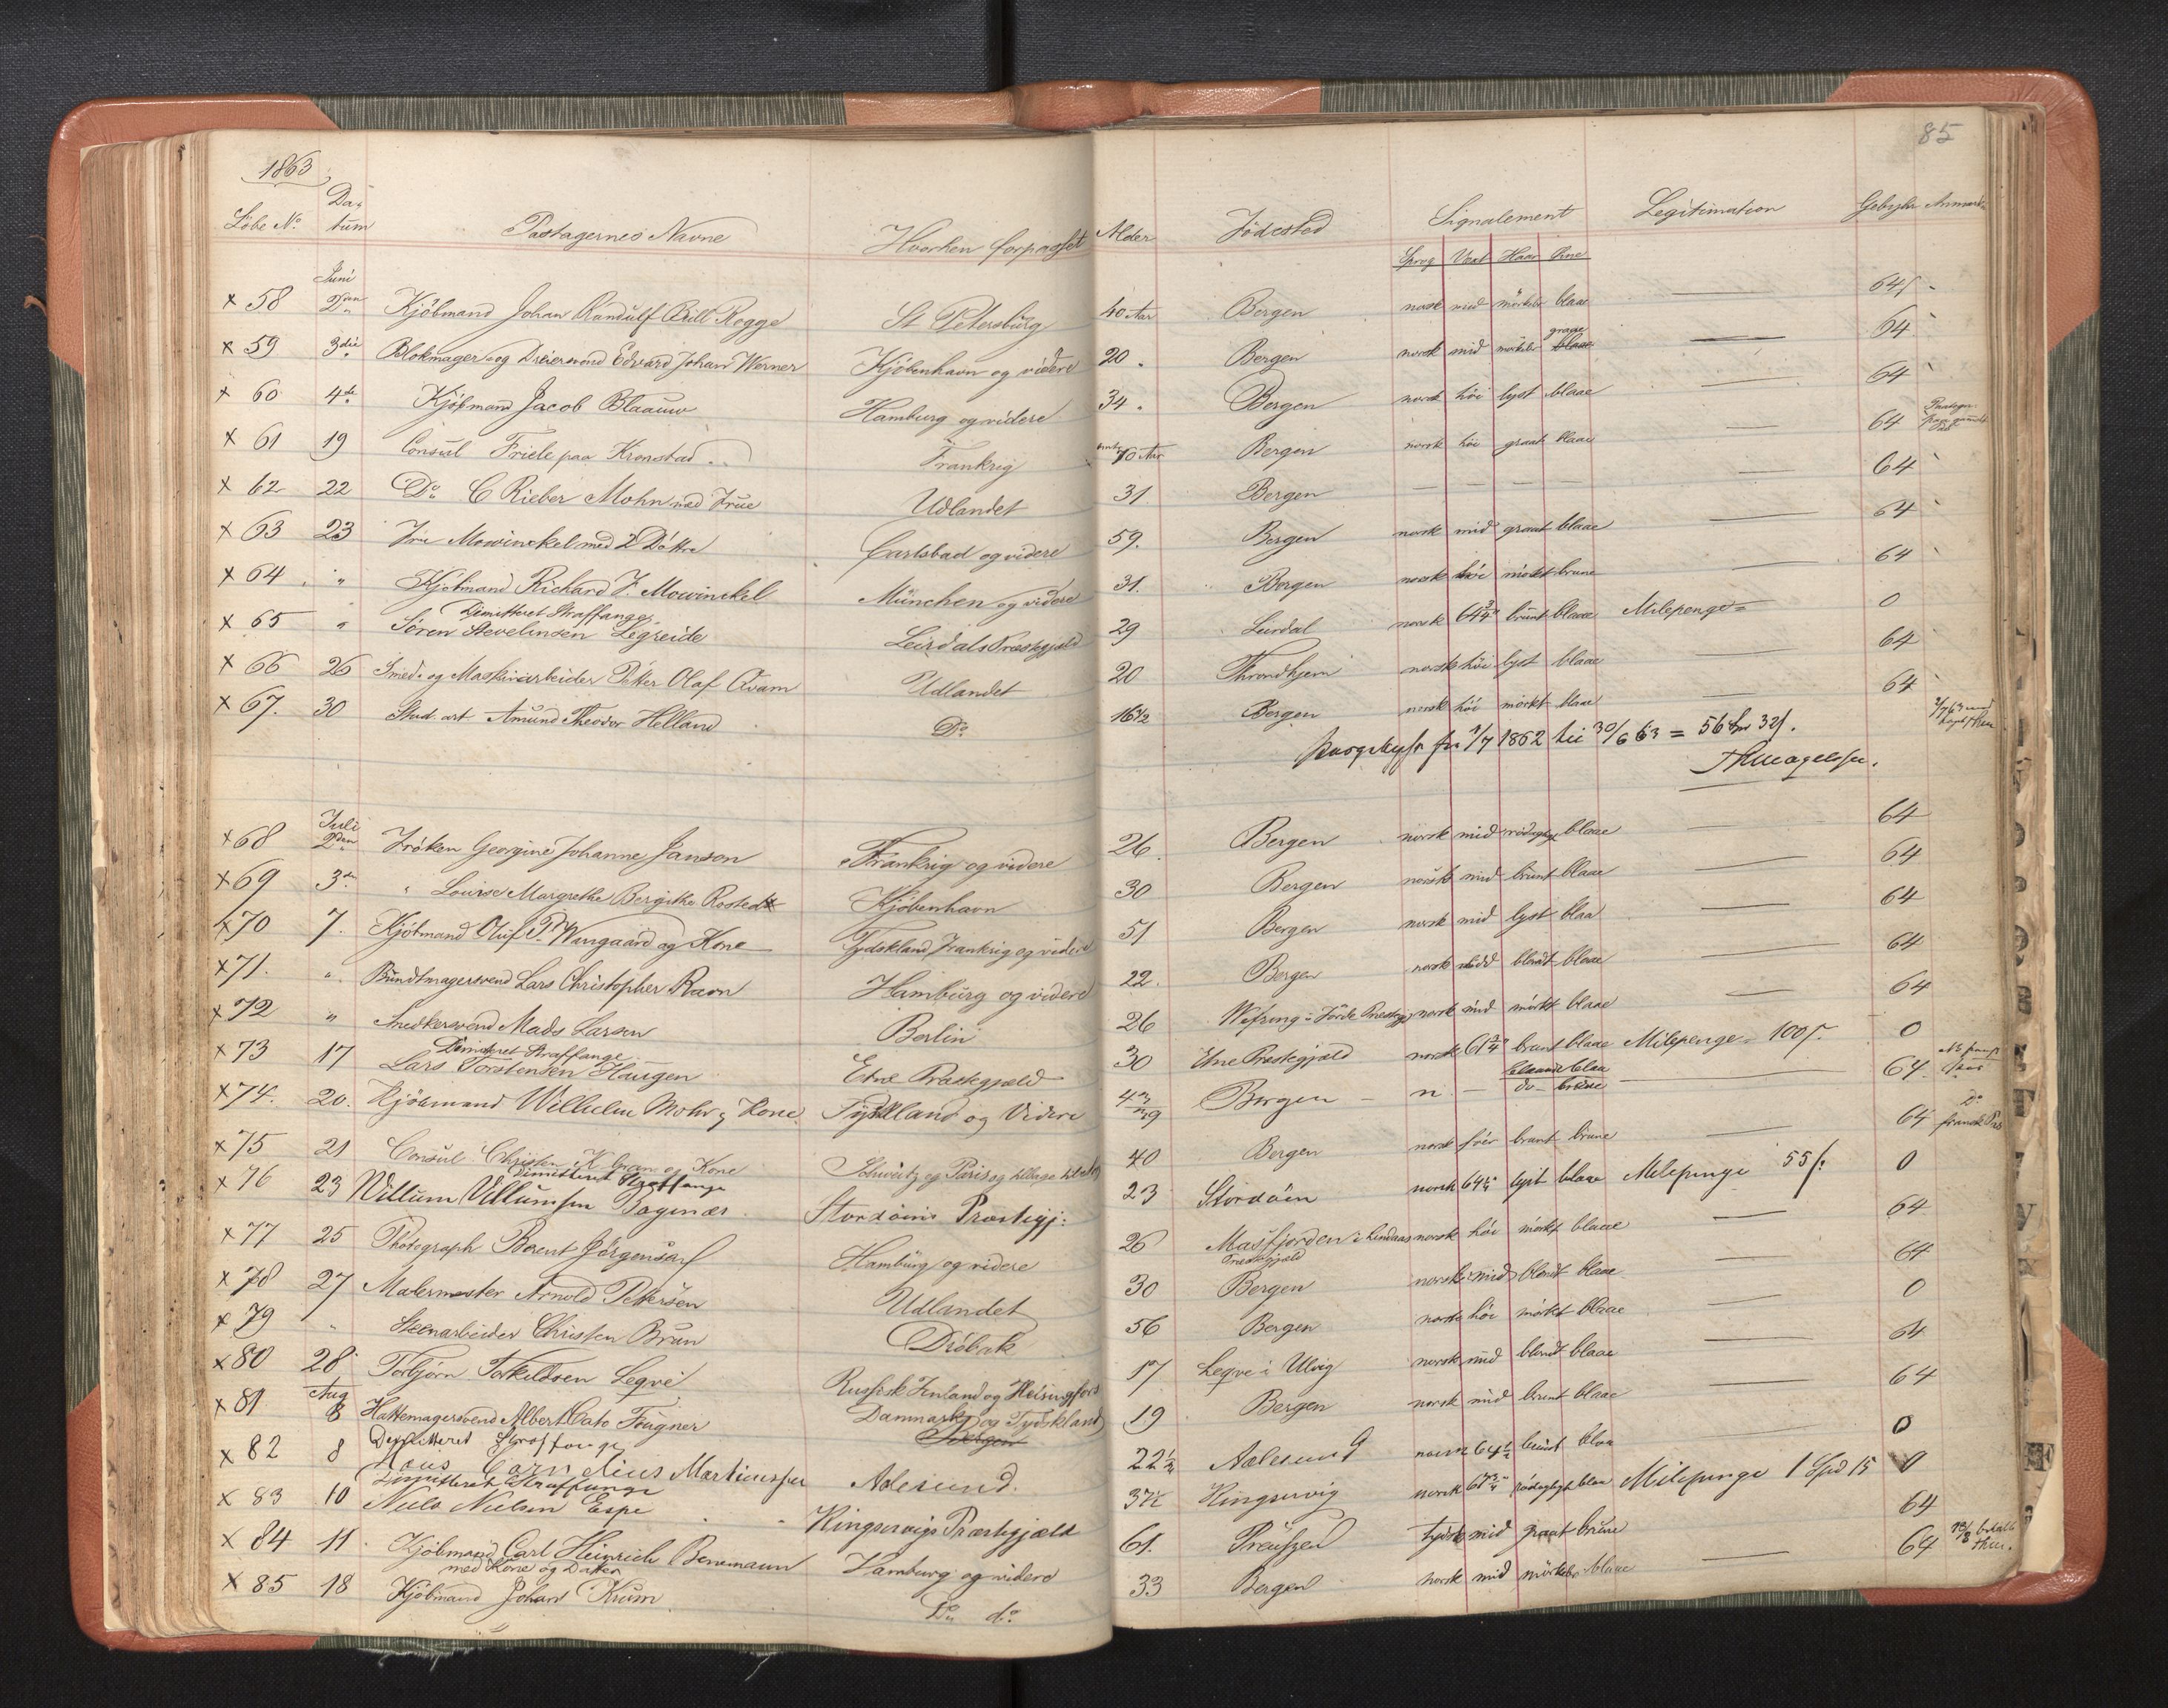 1863
85
Løbe No. Datum Pastagernes Navne Hvorhen forpasset Alder Fødested Signalement Legitimation Gebyhr Anmærk
Sprog Vext Haar Øine
Juni
x 58 2den Kjøbmand Johan Randulf Bull Rogge St Petersburg 40 Aar Bergen norsk mid mørkebr blaae — 64 ſ
x 59 3die Blokmager og Dreiersvend Edvard Johan Werner Kjøbenhavn og videre 20 Bergen norsk mid mørkebr graae — 64
x 60 4de Kjøbmand Jacob Blaauw Hamburg og videre 34 Bergen norsk høi lyst blaae — 64
x 61 19 Consul Friele paa Kronstad Frankrig 70 Aar Bergen norsk høi graat blaae — 64
x 62 22 Do C Rieber Mohn med Frue Udlandet 31 Bergen — — — — 64
x 63 23 Fru Mowinckel med 2 Døttre Carlsbad og videre 59. Bergen norsk mid graat blaae — 64
x 64 " Kjøbmand Richard F. Mowinckel München og videre 31. Bergen norsk høi mørkt brune — 64
Dimitteret Straffange
x 65 " Søren Stevelinsen Legreide Leirdals Præstegjæld 29 Leirdal norsk 64¾" brunt blaae Milepenge = 0
x 66 26 Smed- og Maskinarbeider Petter Olaf Qvam Udlandet 20 Throndhjem norsk høi lyst blaae 64
x 67. 30 Stud. art. Amund Theodor Helland Do 16½ Bergen norsk høi mørkt blaae — 64
fra 1/7 1862 til 30/6 63 = 56 Spd 32 ſ.
Juli
x 68 2den Frøken Georgine Johanne Janson Frankrig og videre 26. Bergen norsk mid blaae — 64
x 69 3die " Louise Margrethe Bergithe Rosted Kjøbenhavn 30 Bergen norsk mid brunt blaae — 64
x 70 7. Kjøbmand Oluf P. Wangaard og Kone Tydskland, Frankrig og videre 51 Bergen norsk mid lyst blaa — 64
x 71. " Bundtmagersvend Lars Christopher Ravn Hamburg og videre 22. Bergen norsk mid blondt blaae — 64
x 72 " Snedkersvend Mads Larsen Berlin 26 i Førde Præstegj norsk mid mørkt blaae — 64
Dimitteret Straffange
x 73 17 Lars Torstensen Haugen Etne Præstegjæld 30 Etne Præstegjæld norsk 61¾" brunt blaae Milepenge = 100 ſ. 0
x 74. 20. Kjøbmand Wilhelm Mohr og Kone Tydskland og Videre Bergen — n — blaae — 64.
do brune
x 75 21 Consul Christen K Gran og Kone Schweitz og Paris og tilbage 40 Bergen norsk brunt brune — 64 Do fransk Pas
Dimitteret Straffange
x 76 23 Willum Villumsen Bagenæs Stordøens Præstegj: 23 Stordøen norsk 64¼" lyst blaae Milepenge 55 ſ: 0
x 77 25 Photograph Berent Jørgensen Hamburg og videre 26 Masfjorden i Lindaas norsk høi mørkt blaae — 64
Præstegjæld
x 78 27 Malermester Arnold Pettersen Udlandet 30 Bergen norsk mid blondt blaae — 64
x 79 " Steenarbeider Christen Brun Drøbak 56 Bergen norsk høi mørkt blaae — 0
x 80 28 Torbjørn Torkeldsen Leqve Russisk Finland og Helsingfors 17 Leqve i Ulvig norsk mid blondt blaae — 64
Aug
x 81 3 Hattemagersvend Albert Cato Fougner Danmark og Tydskland 19 Bergen norsk mid brunt blaae — 64
Dimitteret Straffange Bergen
x 82 8 Hans Cornelius Martinussen Aalesund. 22½ Aalesund norsk 64½ brunt blaa — 0
Dimitteret Straffange
x 83 10 Niels Nielsen Espe Kingservigs Præstegjæld 37½ Kingservig norsk 67¾" blaa Milepenge 1 Spd 15 0
x 84 11 Kjøbmand Carl Heinrich Benemann Hamburg og videre 61. Preussen tydsk mid graat brune 64
med Kone og Datter
x 85 18 Kjøbmand Johan Krüm Do do 33 Bergen norsk mid mørkebr blaae — 64